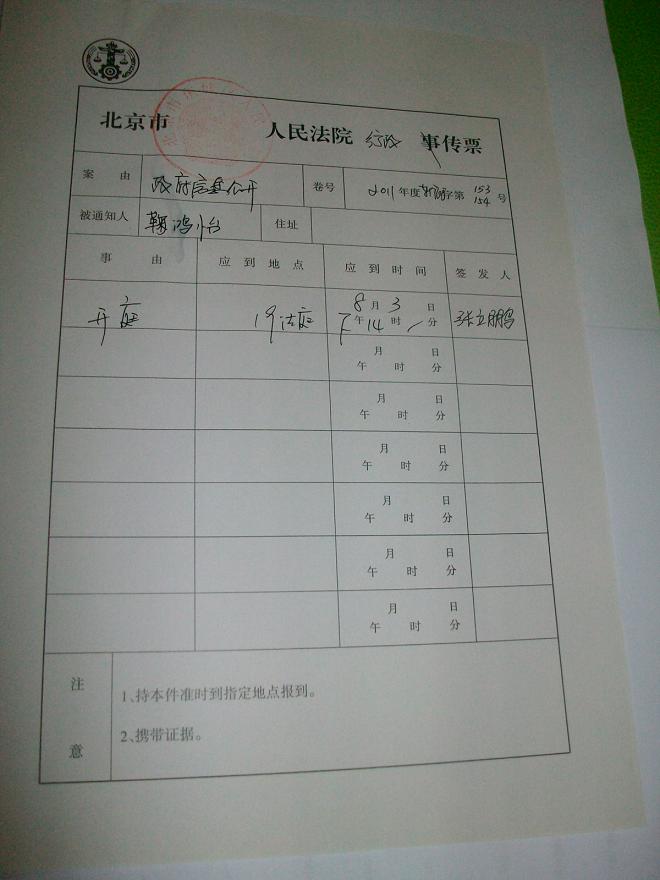 北京市 人民法院 行政 事传票
案由 政府信息公开 卷号 2011年度 字第153 154号
被通知人 鞠鸿怡 住址
事由 应到地点 应到时间 签发人
开庭 19法庭 8月3日 下午14时/分 张立鹏
月 日
午 时 分
月 日
午 时 分
月 日
午 时 分
月 日
午 时 分
月 日
午 时 分
月 日
午 时 分
注意
1、持本件准时到指定地点报到。
2、携带证据。